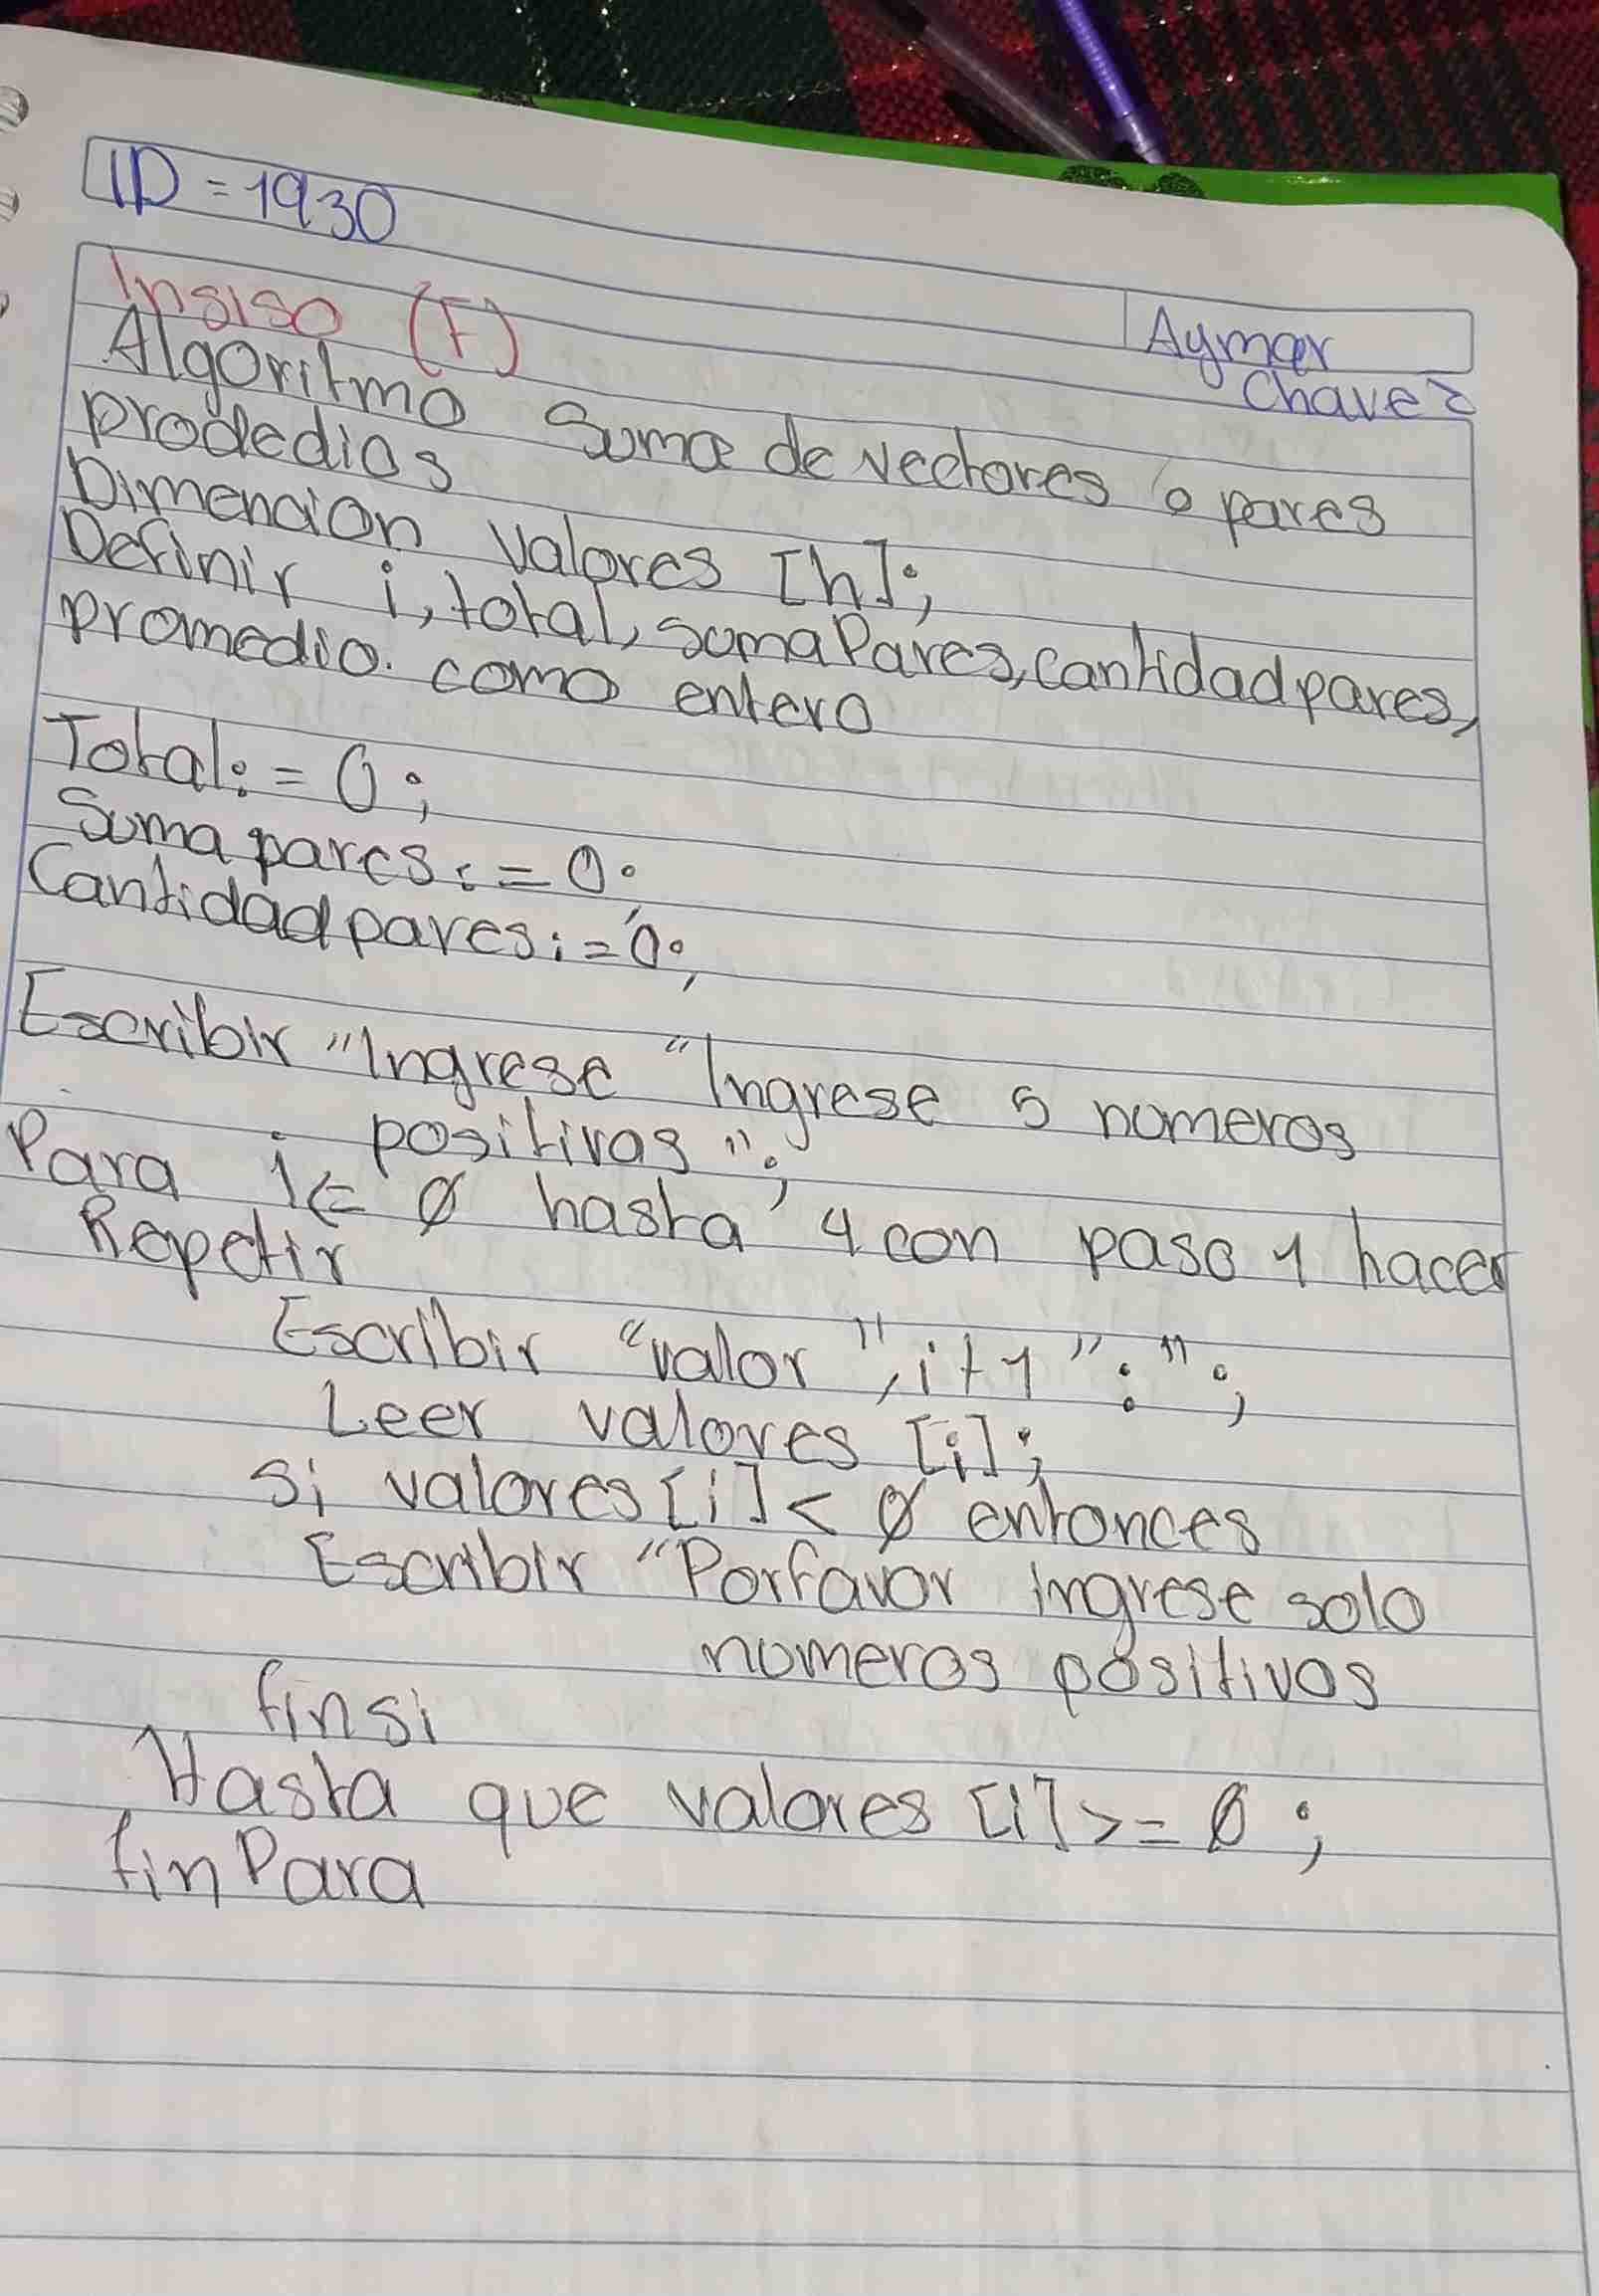 ID = 1930
Insiso (F)
Aymar
Chavez
Algoritmo Suma de vectores o pares
prodedios
Dimencion valores [h];
Definir i, total, sumaPares, cantidadpares,
promedio. como entero
Total: = 0;
Suma pares: = 0;
Cantidad pares: = 0;
Escribir "Ingrese "Ingrese 5 numeros
positivos";
Para i<= 0 hasta 4 con paso 1 hacer
Repetir
Escribir "valor", i+1 ":";
Leer valores [i];
Si valores [i] < 0 entonces
Escribir "Porfavor ingrese solo
numeros positivos
finsi
Hasta que valores [i] >= 0;
finPara